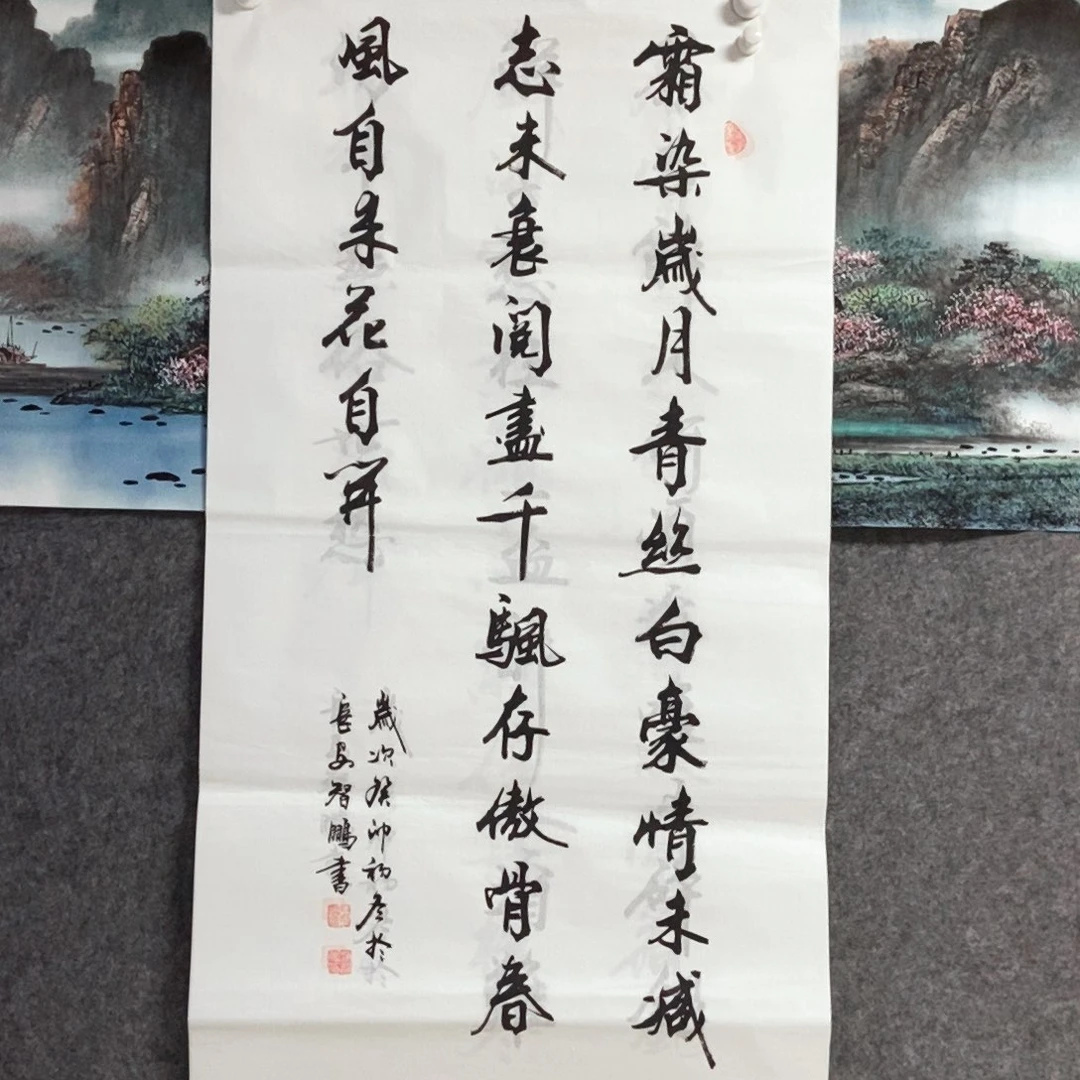 霜染歲月青絲白豪情未減
志未衰閱盡千颿存傲骨春
風自来花自開
歲次癸卯初冬於
長安智鵬書